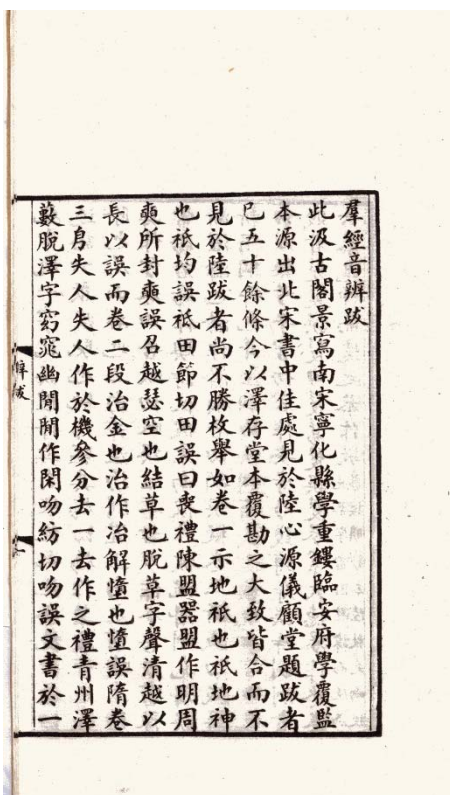 羣經音辨跋
此汲古閣景寫南宋寧化縣學重鏤臨安府學覆監
本源出北宋書中佳處見於陸心源儀顧堂題跋者
已五十餘條今以澤存堂本覆勘之大致皆合而不
見於陸跋者尚不勝枚舉如卷一示地祇也祇地神
也祇均誤祗田節切田誤曰喪禮陳盟器盟作明周
奭所封奭誤召越瑟空也結草也脫草字聲清越以
長以誤而卷二段治金也治作冶解憻也憻誤隋卷
三𠂤失人失人作於機參分去一去作之禮青州澤
藪脫澤字窈窕幽閒閒作閑吻紡切吻誤文書於一
辨跋